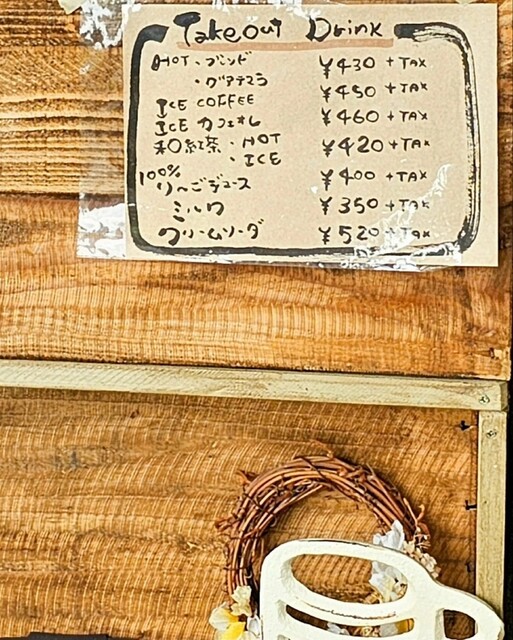 Takeout Drink
HOT・ブレンド ¥430 +TAX
・グアテマラ
ICE COFFEE ¥450 +TAX
ICE カフェオレ ¥460 +TAX
和紅茶・HOT ¥420 +TAX
・ICE
100%
りんごジュース ¥400 +TAX
ミルク ¥350 +TAX
クリームソーダ ¥520 +TAX